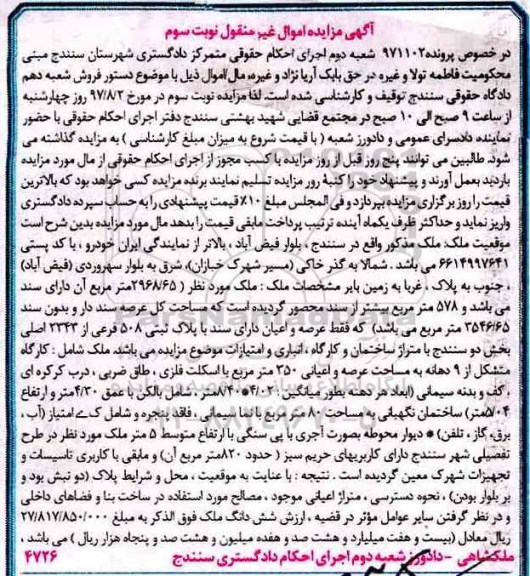 آگهی مزایده اموال غیر منقول نوبت سوم
در خصوص پرونده ۹۷۱۱۰۲ شعبه دوم اجرای احکام حقوقی متمرکز دادگستری شهرستان سنندج مبنی
محکومیت فاطمه تولا و غیره در حق بابک آریا نژاد و غیره، مال/اموال ذیل با موضوع دستور فروش شعبه دهم
دادگاه حقوقی سنندج توقیف و کارشناسی شده است. لذا مزایده نوبت سوم در مورخ ۹۷/۸/۲ روز چهارشنبه
از ساعت ۹ صبح الی ۱۰ صبح در مجتمع قضایی شهید بهشتی سنندج دفتر اجرای احکام حقوقی با حضور
نماینده دادسرای عمومی و دادورز شعبه ( با قیمت شروع به میزان مبلغ کارشناسی ) به مزایده گذاشته می
شود. طالبین می توانند پنج روز قبل از روز مزایده با کسب مجوز از اجرای احکام حقوقی از مال مورد مزایده
بازدید بعمل آورند و پیشنهاد خود را کتبة روز مزایده تسلیم نمایند برنده مزایده کسی خواهد بود که بالاترین
قیمت را روز برگزاری مزایده بپردازد و فی المجلس مبلغ ۱۰٪ قیمت پیشنهادی را به حساب سپرده دادگستری
واریز نماید و حداکثر ظرف یکماه آینده ترتیب پرداخت مابقی قیمت را بدهد مال مورد مزایده بدین شرح است
موقعیت ملک: ملک مذکور واقع در سنندج ، بلوار فیض آباد ، بالاتر از نمایندگی ایران خودرو ، با کد پستی
۶۶۱۴۹۹۷۶۴۱ می باشد . شمالا به گذر خاکی (مسیر شهرک خبازان)، شرق به بلوار سهروردی (فیض آباد)
، جنوب به پلاک ، غربا به زمین بایر مشخصات ملک : ملک مورد نظر ( ۲۹۶۸/۶۵متر مربع آن دارای سند
می باشد و ۵۷۸ متر مربع بیشتر از سند محصور گردیده است که مساحت کل عرصه سند دار و بدون سند
۳۵۴۶/۶۵ متر مربع می باشد) که فقط عرصه و اعیان دارای سند با پلاک ثبتی ۵۰۸ فرعی از ۲۳۴۳ اصلی
بخش دو سنندج با متراژ ساختمان و کارگاه ، انباری و امتیازات موضوع مزایده می باشد. ملک شامل : کارگاه
متشکل از ۹ دهانه به مساحت عرصه و اعیانی ۳۵۰ متر مربع با اسکلت فلزی ، طاق ضربی ، درب کرکره ای
، کف و بدنه سیمانی (ابعاد هر دهنه بطور میانگین : ۴/۰۲*۸/۴۰متر، شامل بالکن با عمق ۴/۳۰متر و ارتفاع
۵/۰۴متر) ساختمان نگهبانی به مساحت ۸۰ متر مربع با نما سیمانی ، فاقد پنجره و شامل ک ے امتیاز (آب ،
برق، گاز ، تلفن) * دیوار محوطه بصورت آجری با پی سنگی با ارتفاع متوسط ۵ متر ملک مورد نظر در طرح
تفصیلی شهر سنندج دارای کاربریهای حریم سبز ( حدود ۸۲۰متر مربع آن) و مابقی با کاربری تاسیسات و
تجهیزات شهرک معین گردیده است . نتیجه : با عنایت به موقعیت ، محل و شرایط پلاک (دو نبش بود و
بر بلوار بودن) ، نحوه دسترسی ، متراژ اعیانی موجود ، مصالح مورد استفاده در ساخت بنا و فضاهای داخلی
و در نظر گرفتن سایر عوامل مؤثر در قضیه ، ارزش شش دانگ ملک فوق الذکر به مبلغ ۲۷/۸۱۷/۸۵۰/۰۰۰
ریال معادل (بیست و هفت میلیارد و هشت صد و هفده میلیون و هشت صد و پنجاه هزار ریال ) می باشد ،
ملکشاهی - دادورز شعبه دوم اجرای احکام دادگستری سنندج ۴۷۲۶